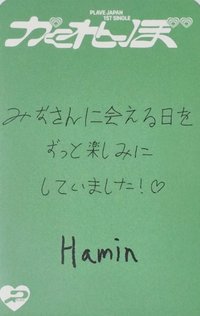 PLAVE JAPAN
1ST SINGLE
かくれんぼ
みなさんに会える日を
ずっと楽しみに
していました!♡
Hamin